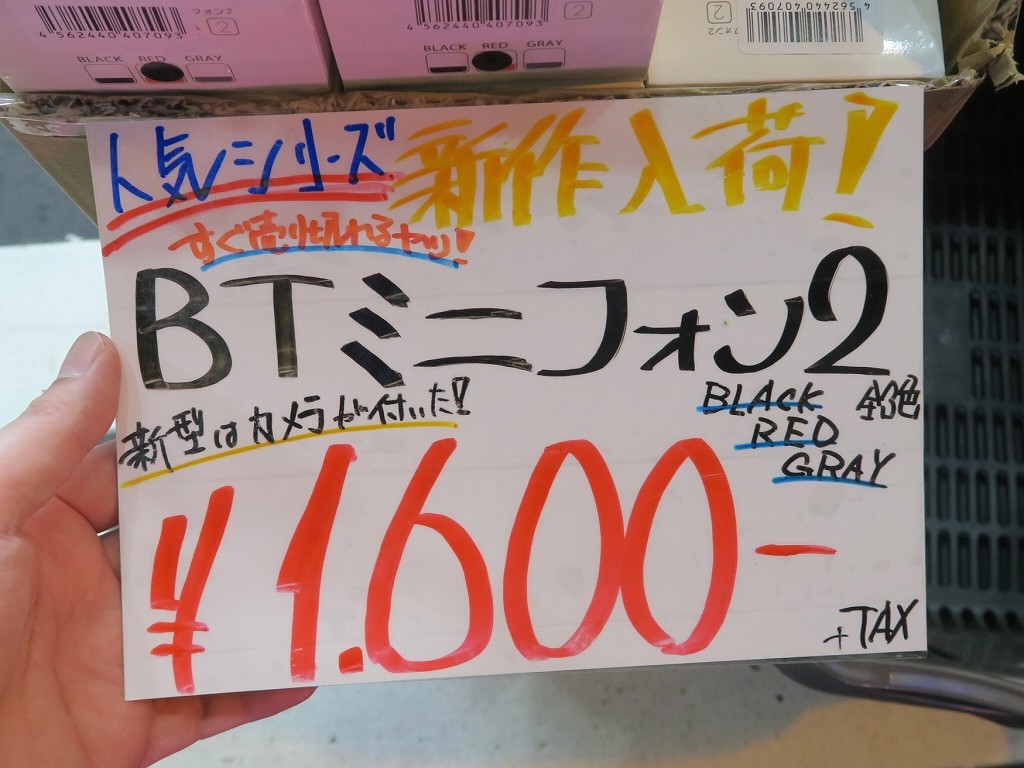 フォン2
2
4 562440 407093
BLACK RED GRAY
2
4 562440 407093
BLACK RED GRAY
フォン2
2
4 562440 407093
人気シリーズ 新作入荷!
すぐ売り切れるヤツ!
BTミニフォン2
新型はカメラが付いた!!
BLACK 全3色
RED
GRAY
¥1.600-
+TAX